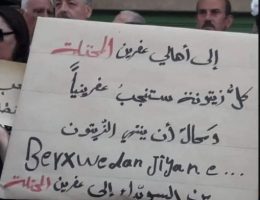 إلى أهالي عفرين المحتلة
كلُّ زيتونة ستنجبُ عفرينياً
ومحال أن ينتهي الزيتون
Berxwedan Jiyane...
من السويداء إلى عفرين المحتلة